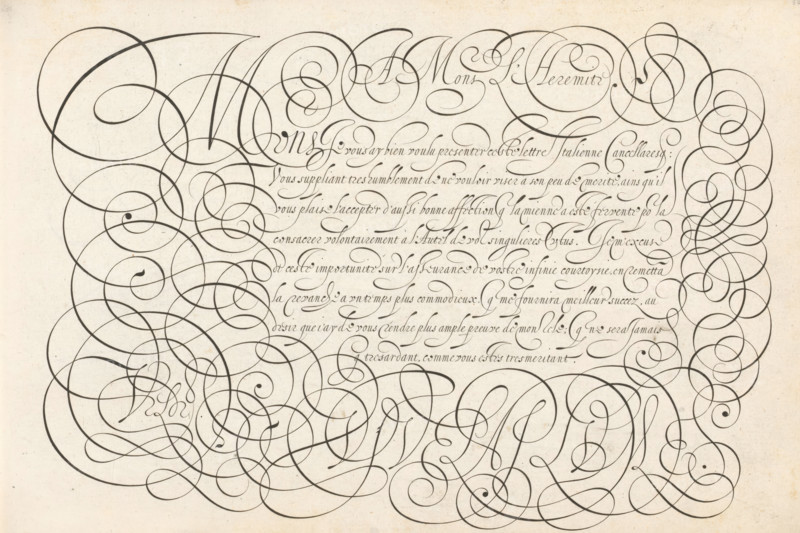 A Mons. L'Heremite.
Mons. Je vous ay bien voulu presenter ceste lettre Italienne Cancellaresq;
Vous suppliant tres humblement de ne vouloir viser a son peu de merite, ains qu'il
vous plaise l'accepter d'aussi bonne affection q̃ la mienne a este fervente po.r la
consacrer volontairement à l'Autel de voz singulieres Vertus. Je m'excuse
de ceste importunité sur l'asseurance de vostre infinie courtoysie, en remettã
la revanche a un temps plus commodieux, q̃ me fournira meilleur succez, au
desir que i'ay de vous rendre plus ample preuve de mon zele: q̃ ne sera jamais
tres ardant, comme vous estes tres meritant.